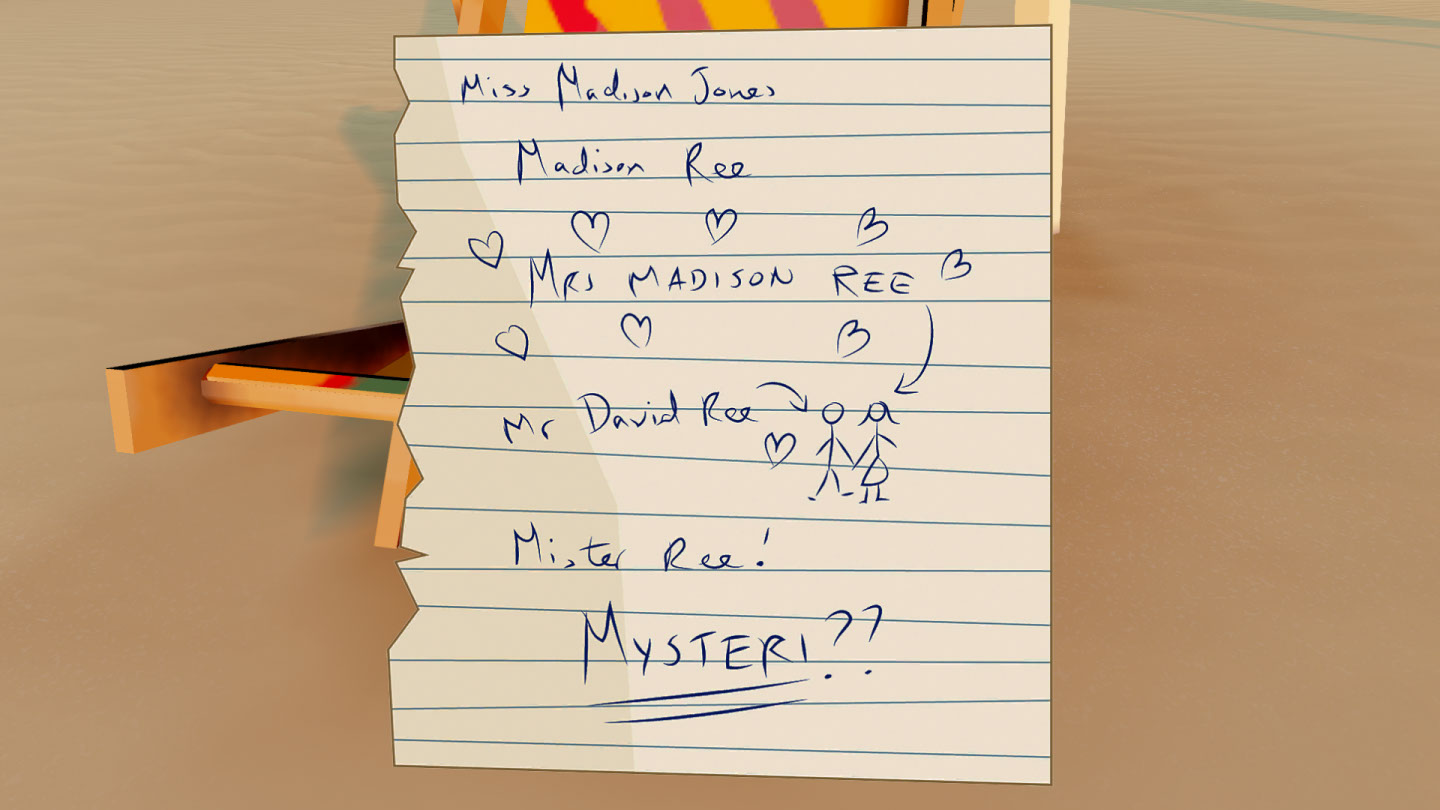 Miss Madison Jones
Madison Ree
MRS MADISON REE
Mr David Ree
Mister Ree!
MYSTERI??